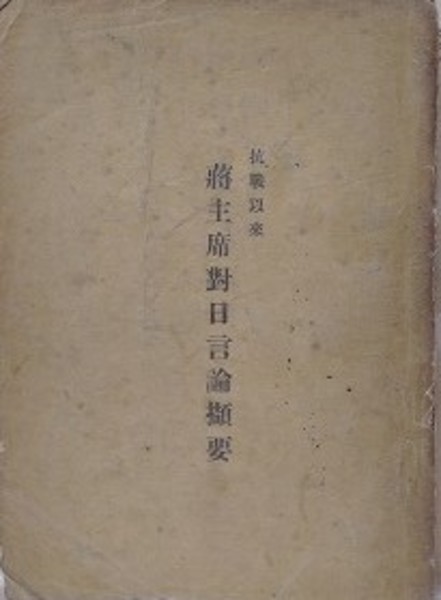 抗戰以來
蔣主席對日言論擷要